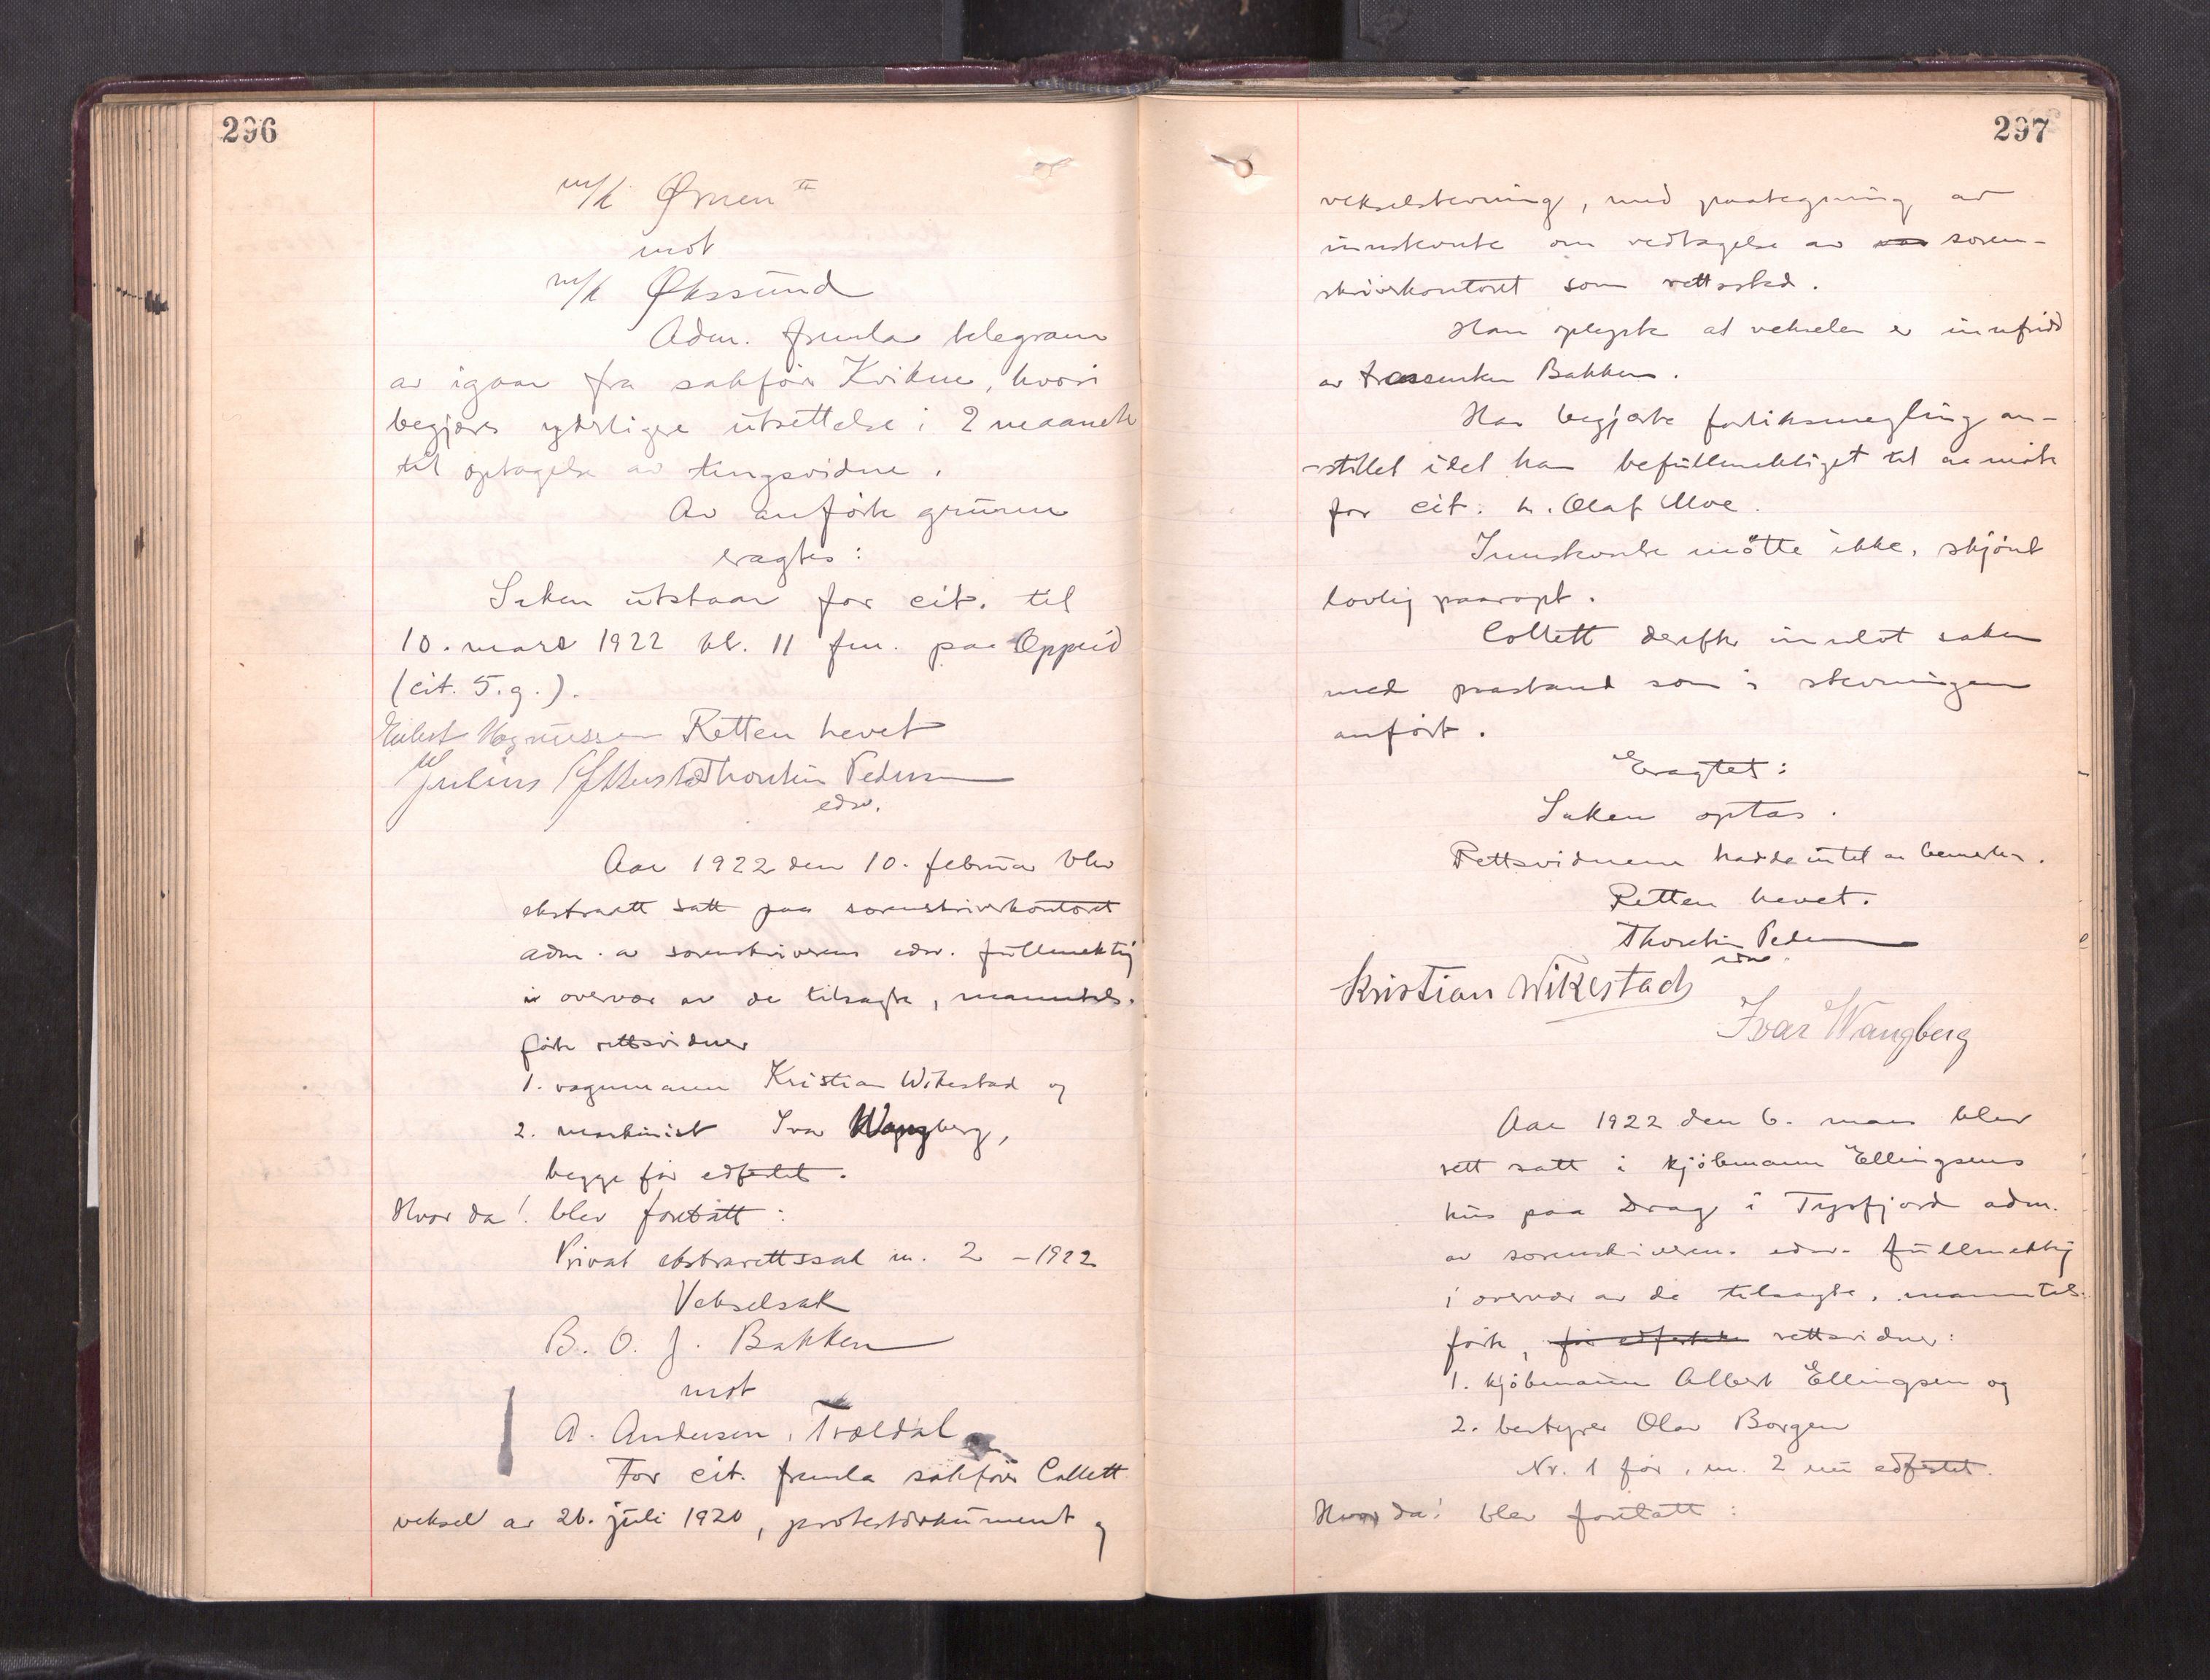 296
m/k Ørnen II
mot
m/k Økssund
Adm. fremla telegram
av igaar fra sakfører Kvikne, hvori
begjæres yderligere utsettelse i 2 maaneder
til optagelse av tingsvidne.
Av anførte grunne
eragtes:
Saken utstaar for cit. til
10. mars 1922 kl. 11 fm. paa Oppeid
(cit. 5. g.).
Magnussen Retten hevet
Julius Thorstein Pedersen
edsv.
Aar 1922 den 10. februar blev
ekstrarett satt paa sorenskriverkontoret
adm. av sorenskriverens edsv. fullmektig
i overvær av de tilsagte, manntals-
førte rettsvidner
1. vognmann Kristian Wikestad og
2. maskinist Ivar Wangberg,
begge før edfestet.
Hvor da! blev foretatt:
Privat ekstrarettssak nr. 2 - 1922
Vekselsak
B. O. J. Bakken
mot
A. Andersen, Trældal
For cit. fremla sakfører Collett
veksel av 26. juli 1920, protestdokument og
297
vekselstevning, med paategning av
innstevnte om vedtagelse av soren-
skriverkontoret som rettssted.
Han oplyste at vekselen er innfridd
av trassenten Bakken.
Han begjærte forliksmegling an-
stillet idet han befullmektiget til aa møte
for cit. h. Olaf Moe.
Innstevnte møtte ikke, skjønt
lovlig paaropt.
Collett derefter innlot saken
med paastand som i stevningen
anført.
Eragtet:
Saken optas.
Rettsvidnene hadde intet at bemerke.
Retten hevet.
Thorstein Pedersen
edsv.
Kristian Wikestad
Ivar Wangberg
Aar 1922 den 6. mars blev
rett satt i kjøbmann Ellingsens
hus paa Drag i Tysfjord adm.
av sorenskriverens edsv. fullmektig
i overvær av de tilsagte, manntals-
førte, før edfestede rettsvidner:
1. kjøbmann Albert Ellingsen og
2. bestyrer Olav Borgen
Nr. 1 før, nr. 2 nu edfestet.
Hvor da! blev foretatt: